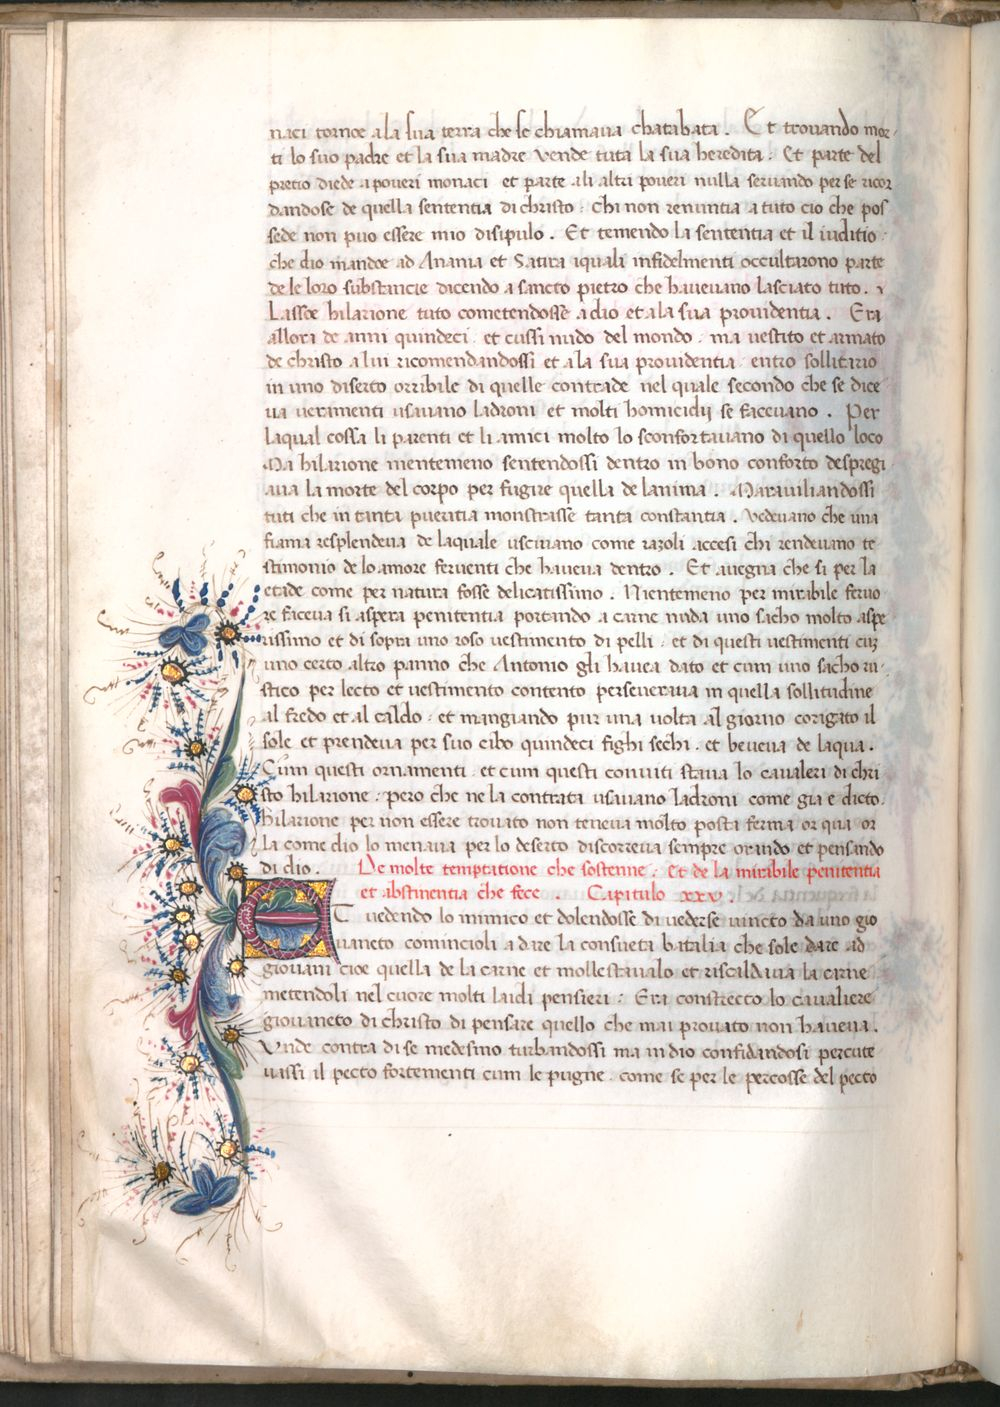 naci tornoe a la sua terra che se chiamaua chatabata . Et trouando mor
ti lo suo padre et la sua madre vende tuta la sua heredita . Et parte del
pretio diede a poueri monaci et parte ali altri poueri nulla seruando per se ricor
dandose de quella sententia di christo . Chi non renuntia a tuto cio che pos
sede non puo essere mio disipulo . Et temendo la sententia et il iuditio
che dio mandoe ad Anania et Satira iquali infidelmenti occultarono parte
de le loro substancie dicendo a sancto pietro che haueuano lasciato tuto .
Lassoe hilarione tuto cometendosse a dio et a la sua prouidentia . Era
allora de anni quindeci . et cussi nudo del mondo . ma uestito et armato
de christo a lui ricomendandossi et a la sua prouidentia entro sollitario
in uno diserto orribile di quelle contrade nel quale secondo che se dice
ua ueramenti usauano ladroni et molti homicidij se faceuano . Per
laqual cossa li parenti et li amici molto lo sconfortauano di quello loco
Ma hilarione nientemeno sentendossi dentro in bono conforto despregi
aua la morte del corpo per fugire quella de lanima . Marauiliandossi
tuti che in tanta pueritia monstrasse tanta constantia . vedeuano che una
fiama resplendeua de laquale usciuano come razoli accesi chi rendeuano te
stimonio de lo amore feruenti che haueua dentro . Et auegna che si per la
etade come per natura fosse delicatissimo . Nientemeno per mirabile feruo
re faceua si aspera penitentia portando a carne nuda uno sacho molto aspe
rissimo et di sopra uno roso uestimento di pelli . et di questi uestimenti cuz
uno certo altro panno che Antonio gli hauea dato et cum uno sacho ru
stico per lecto et uestimento contento perseueraua in quella sollitudine
al fredo et al caldo . et mangiando pur una uolta al giorno corigato il
sole et prendeua per suo cibo quindeci fighi sechi . et beueua de laqua .
Cum questi ornamenti . et cum questi conuiti staua lo caualeri di chri
sto hilarione . pero che ne la contrata usauano ladroni come gia e dicto.
hilarione per non essere trouato non teneua molto posta ferma or qua or
la come dio lo menaua per lo deserto discorreua sempre orando et pensando
di dio . De molte temptatione che sostenne . Et de la mirabile penitentia
et abstinentia che fece . Capitulo xxv .
Et uedendo lo inimico et dolendosse di uederse uincto da uno gio
uaneto comincioli a dare la consueta batalia che sole dare ad
giouani cioe quella de la carne et mollestaualo et riscaldaua la carne
metendoli nel cuore molti laidi pensieri . Era constrecto lo caualiere
giouaneto di christo di pensare quello che mai prouato non haueua .
Vnde contra di se medesmo turbandossi ma in dio confidandosi percute
uassi il pecto fortementi cum le pugne . come se per le percosse del pecto